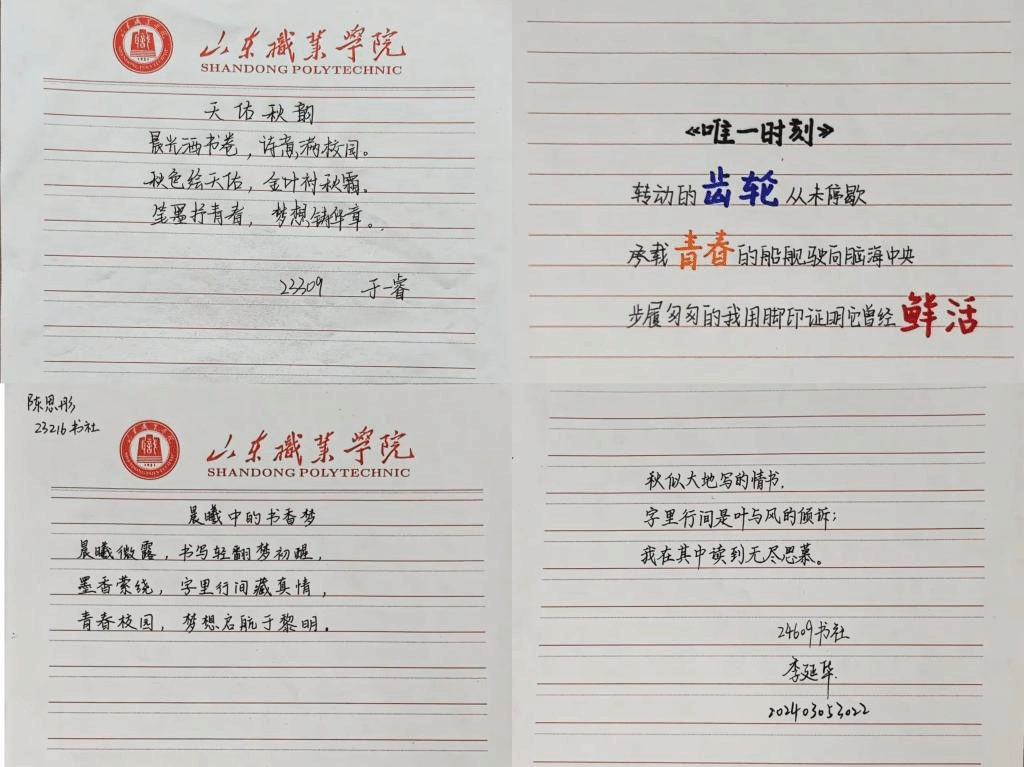 山东职业学院
SHANDONG POLYTECHNIC
天佑秋韵
晨光洒书卷，诗意满校园。
秋色绘天佑，金叶衬秋霜。
笔墨抒青春，梦想铸华章。
23309 于一睿
《唯一时刻》
转动的齿轮从未停歇
承载青春的船舰驶向脑海中央
步履匆匆的我用脚印证明它曾经鲜活
陈思彤
23216书社
山东职业学院
SHANDONG POLYTECHNIC
晨曦中的书香梦
晨曦微露，书写轻翻梦初醒，
墨香萦绕，字里行间藏真情，
青春校园，梦想启航于黎明。
秋似大地写的情书，
字里行间是叶与风的倾诉；
我在其中读到无尽思慕。
24609书社
李延华
202403053022